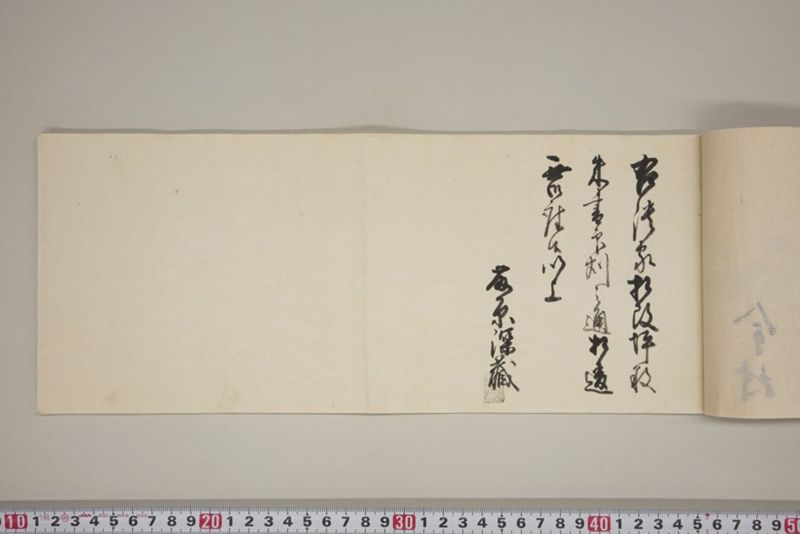 右潰家相改坪数
朱書之通相違
無御座候以上
原深蔵
10 1 2 3 4 5 6 7 8 9 20 1 2 3 4 5 6 7 8 9 30 1 2 3 4 5 6 7 8 9 40 1 2 3 4 5 6 7 8 9 50